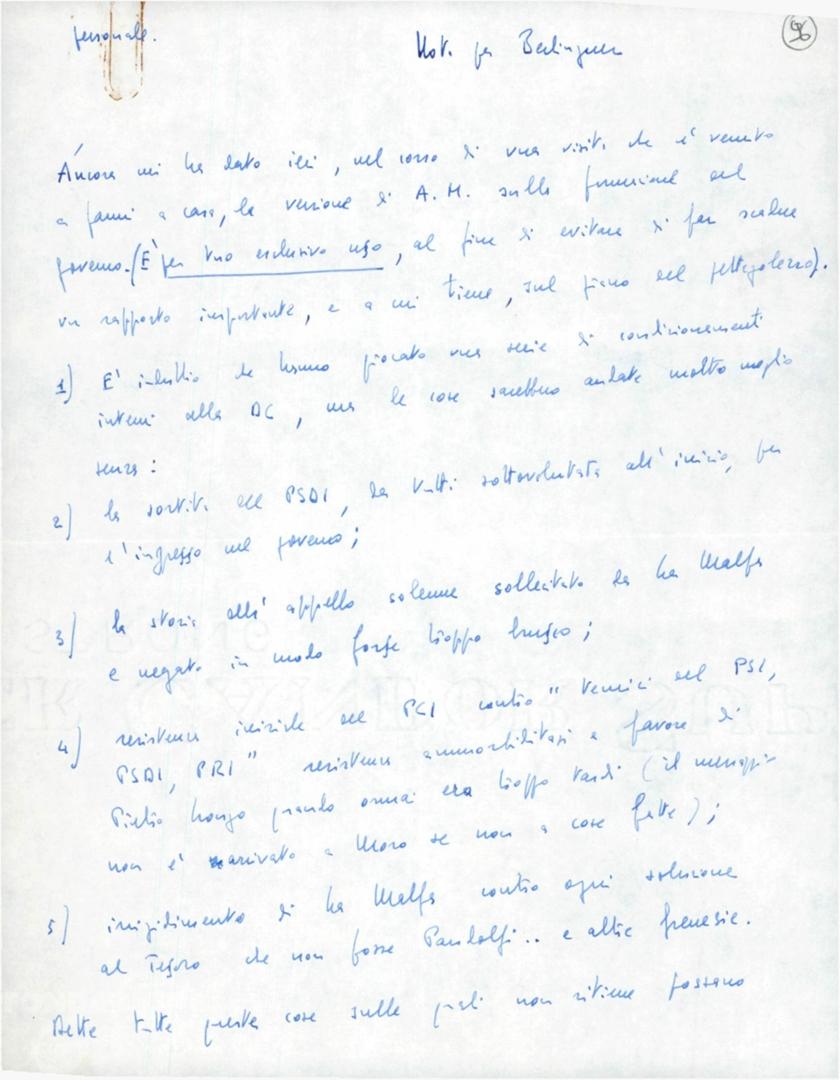 personale.
Nota per Berlinguer
96
Ancora mi ha dato ieri, nel corso di una visita che è venuto
a farmi a casa, la versione di A. M. sulla formazione del
governo. (È per tuo esclusivo uso, al fine di evitare di far scadere
un rapporto importante, e a cui tiene, sul piano del pettegolezzo).
1) E' indubbio che hanno giocato una serie di condizionamenti
interni alla DC, ma le cose sarebbero andate molto meglio
senza:
2) la sortita del PSDI, da tutti sottovalutata all'inizio, per
l'ingresso nel governo;
3) la storia dell'appello solenne sollecitato da La Malfa
e negato in modo forse troppo brusco;
4) resistenza iniziale del PCI contro "tecnici del PSI,
PSDI, PRI" resistenza ammorbiditasi a favore di
Pietro Longo quando ormai era troppo tardi (il messaggio
non è arrivato a Moro se non a cose fatte);
5) irrigidimento di La Malfa contro ogni soluzione
al Tesoro che non fosse Pandolfi.. e altre frenesie.
Dette tutte queste cose sulle quali non ritiene possano